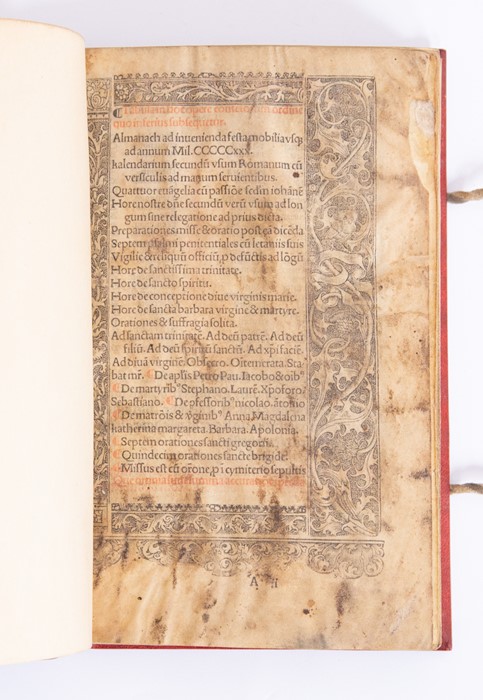 quo inferius subsequitur.
Almanach ad inuenienda festa mobilia vsq3
ad annum Mil.CCCCCxxx.
kalendarium secundũ vsum Romanum cũ
versiculis ad magum seruientibus.
Quattuor euãgelia cũ passiõe sedm iohãnẽ
Hore nostre dñe secundũ verũ vsum ad lon
gum sine relegatione ad prius dicta.
Preparationes misse & oratio post eã dicẽda
Septem psalmi penitentiales cũ letaniis suis
Vigilie & reliquũ officiũ, p defũctis ad lõgũ
Hore de sanctissima trinitate.
Hore de sancto spiritu.
Hore de conceptione diue virginis marie.
Hore de sancta barbara virgine & martyre.
Orationes & suffragia solita.
Ad sanctam trinitatẽ. Ad deũ patrẽ. Ad deũ
filiũ. Ad deũ spiritũ sanctũ. Ad xp̃i faciẽ.
Ad diuã virginẽ. Obsecro. O itemerata. Sta
bat mr̃. ¶ De aplis Petro Pau. Iacobo & oib᷒
¶ De martyrib᷒ Stephano. Laurẽ. Xpoforo
Sebastiano. ¶ De pfessorib᷒ nicolao. ãtonio
¶ De matrõis & vginib᷒ Anna. Magdalena
katherina margareta. Barbara. Apolonia.
¶ Septem orationes sancti gregorii.
¶ Quindecim orationes sancte brigide.
¶ Missus est cũ orõne, p i cymiterio sepultis
A ii